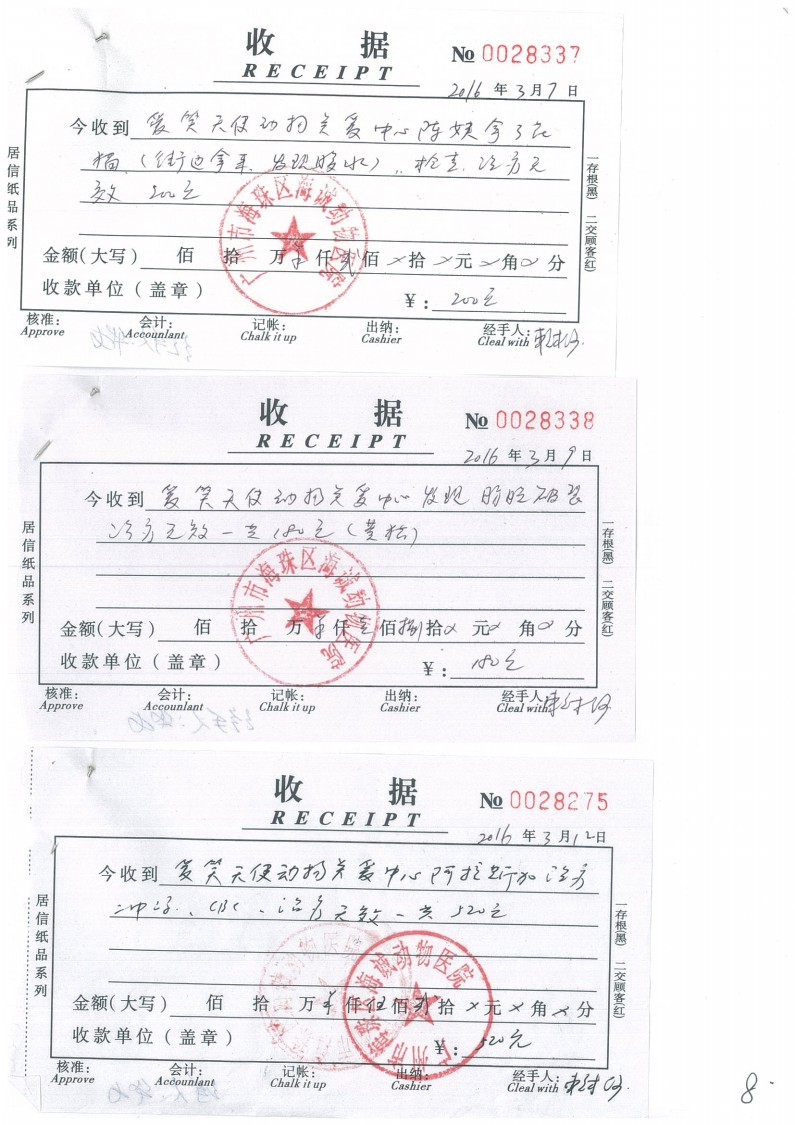 收 据
RECEIPT
№ 0028337
2016 年 3 月 7 日
今收到 爱笑天使动物关爱中心陈姨拿
(街边拿来、发现 )、检查、治疗无
效 200元
金额(大写) 佰 拾 万 仟 贰 佰 × 拾 × 元 × 角 × 分
收款单位(盖章)
¥: 200元
核准: 会计: 记帐: 出纳: 经手人:
Approve Accounlant Chalk it up Cashier Cleal with
居信纸品系列
一存根(黑) 二交顾客(红)
广州市海珠区海诚动物医院
收 据
RECEIPT
№ 0028338
2016 年 3 月 9 日
今收到 爱笑天使动物关爱中心 发现 破裂
治疗无效一共180元(黄松)
金额(大写) 佰 拾 万 仟 壹 佰 捌 拾 × 元 × 角 × 分
收款单位(盖章)
¥: 180元
核准: 会计: 记帐: 出纳: 经手人
Approve Accounlant Chalk it up Cashier Cleal with
居信纸品系列
一存根(黑) 二交顾客(红)
广州市海珠区海诚动物医院
收 据
RECEIPT
№ 0028275
2016 年 3 月 12 日
今收到 爱笑天使动物关爱中心阿拉斯加治疗
、CBC、治疗无效一共520元
金额(大写) 佰 拾 万 仟 伍 佰 贰 拾 × 元 × 角 × 分
收款单位(盖章)
¥: 520元
核准: 会计: 记帐: 出纳: 经手人:
Approve Accounlant Chalk it up Cashier Cleal with
居信纸品系列
一存根(黑) 二交顾客(红)
广州市海珠区海诚动物医院
8